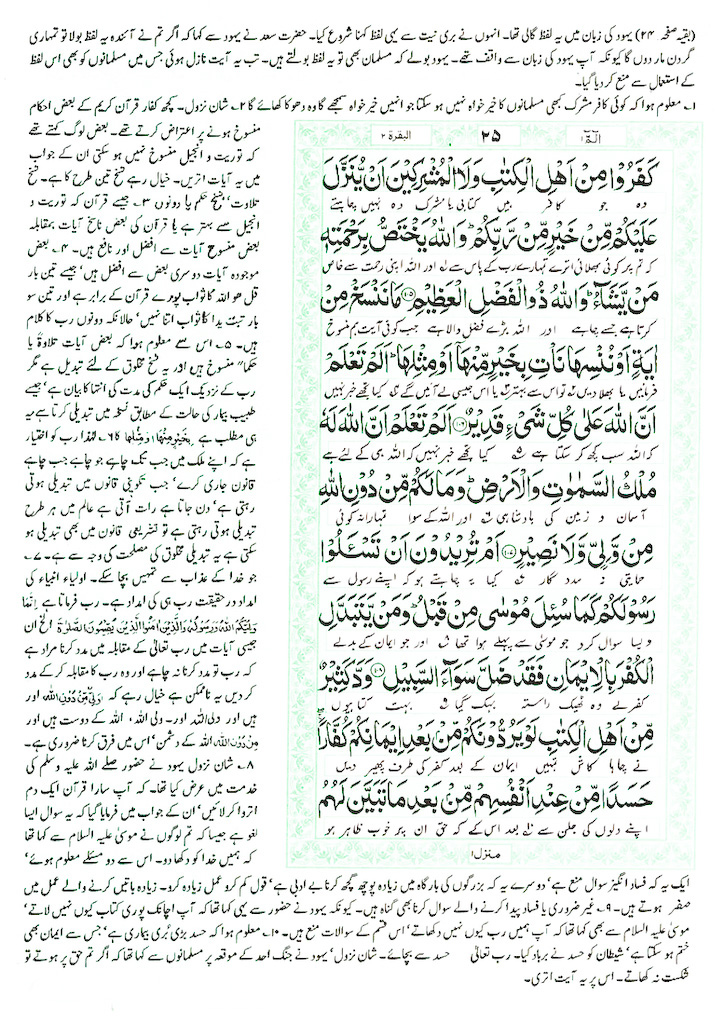 (بقیہ صفحہ ۲۴) یہود کی زبان میں یہ لفظ گالی تھا۔ انہوں نے بری نیت سے یہی لفظ کہنا شروع کیا۔ حضرت سعد نے یہود سے کہا کہ اگر تم نے آئندہ یہ لفظ بولا تو تمہاری
گردن مار دوں گا کیونکہ آپ یہود کی زبان سے واقف تھے۔ یہود بولے کہ مسلمان بھی تو یہ لفظ بولتے ہیں۔ تب یہ آیت نازل ہوئی جس میں مسلمانوں کو بھی اس لفظ
کے استعمال سے منع کر دیا گیا۔
۱۔ معلوم ہوا کہ کوئی کافر مشرک کبھی مسلمانوں کا خیر خواہ نہیں ہو سکتا جو انہیں خیر خواہ سمجھے گا وہ دھوکا کھائے گا ۲۔ شان نزول۔ کچھ کفار قرآن کریم کے بعض احکام
منسوخ ہونے پر اعتراض کرتے تھے۔ بعض لوگ کہتے تھے
کہ توریت و انجیل منسوخ نہیں ہو سکتی ان کے جواب
میں یہ آیات اتریں۔ خیال رہے نسخ تین طرح کا ہے۔ نسخ
تلاوت' نسخ حکم یا دونوں ۳۔ جیسے قرآن کہ توریت و
انجیل سے بہتر ہے یا قرآن کی بعض ناسخ آیات بمقابلہ
بعض منسوخ آیات سے افضل اور نافع ہیں۔ ۴۔ بعض
موجودہ آیات دوسری بعض سے افضل ہیں' جیسے تین بار
قل ھو اللہ کا ثواب پورے قرآن کے برابر ہے اور تین سو
بار تبت یدا کا ثواب اتنا نہیں' حالانکہ دونوں رب کا کلام
ہیں۔ ۵۔ اس سے معلوم ہوا کہ بعض آیات تلاوۃً یا
حکماً منسوخ ہیں اور یہ نسخ مخلوق کے لئے تبدیل ہے مگر
رب کے نزدیک ایک حکم کی مدت کی انتہا کا بیان ہے' جیسے
طبیب بیمار کی حالت کے مطابق نسخہ میں تبدیلی کرتا ہے یہ
ہی مطلب ہے بِخَيْرٍ مِّنْهَا أَوْ مِثْلِهَا کا ۶۔ لہذا رب کو اختیار
ہے کہ اپنے ملک میں جب تک چاہے جو چاہے جب چاہے
قانون جاری کرے' جب تکوینی قانون میں تبدیلی ہوتی
رہتی ہے' دن جاتا ہے رات آتی ہے عالم میں ہر طرح
تبدیلی ہوتی رہتی ہے تو تشریعی قانون میں بھی تبدیلی ہو
سکتی ہے یہ تبدیلی مخلوق کی مصلحت کی وجہ سے ہے۔ ۷۔
جو خدا کے عذاب سے تمہیں بچا سکے۔ اولیاء انبیاء کی
امداد درحقیقت رب ہی کی امداد ہے۔ رب فرماتا ہے اِنَّمَا
وَلِيُّكُمُ اللهُ وَرَسُولُهُ وَالَّذِينَ اٰمَنُوا الَّذِينَ يُقِيمُونَ الصَّلٰوةَ الخ ان
جیسی آیات میں رب تعالیٰ کے مقابلہ میں مدد کرنا مراد ہے
کہ رب تو مدد کرنا نہ چاہے اور وہ رب کا مقابلہ کر کے مدد
کر دیں یہ ناممکن ہے خیال رہے کہ وَلِیٌّ مِّنْ دُوْنِ اللهِ اور
ہیں اور ولی اللہ اور۔ ولی اللہ' اللہ کے دوست ہیں اور
مِنْ دُوْنِ اللهِ' اللہ کے دشمن' اس میں فرق کرنا ضروری ہے۔
۸۔ شان نزول یہود نے حضور صلے اللہ علیہ وسلم کی
خدمت میں عرض کیا تھا۔ کہ آپ سارا قرآن ایک دم
اتروا کر لائیں' ان کے جواب میں فرمایا گیا کہ یہ سوال ایسا
لغو ہے جیسا کہ تم لوگوں نے موسیٰ علیہ السلام سے کہا تھا
کہ ہمیں خدا کو دکھا دو۔ اس سے دو مسئلے معلوم ہوئے'
الٓمّٓ ۱
۲۵
البقرۃ ۲
كَفَرُوْا مِنْ اَهْلِ الْكِتٰبِ وَلَا الْمُشْرِكِيْنَ اَنْ يُّنَزَّلَ
وہ جو کافر ہیں کتابی یا مشرک وہ نہیں چاہتے
عَلَيْكُمْ مِّنْ خَيْرٍ مِّنْ رَّبِّكُمْ وَاللّٰهُ يَخْتَصُّ بِرَحْمَتِهٖ
کہ تم پر کوئی بھلائی اترے تمہارے رب کے پاس سے اور اللہ اپنی رحمت سے خاص
مَنْ يَّشَآءُ وَاللّٰهُ ذُو الْفَضْلِ الْعَظِيْمِ ۱۰۵ مَا نَنْسَخْ مِنْ
کرتا ہے جسے چاہے اور اللہ بڑے فضل والا ہے جب کوئی آیت ہم منسوخ
اٰيَةٍ اَوْ نُنْسِهَا نَاْتِ بِخَيْرٍ مِّنْهَآ اَوْ مِثْلِهَا اَلَمْ تَعْلَمْ
فرمائیں یا بھلا دیں تو اس سے بہتر یا اس جیسی لے آئیں گے کیا تجھے خبر نہیں
اَنَّ اللّٰهَ عَلٰى كُلِّ شَيْءٍ قَدِيْرٌ ۱۰۶ اَلَمْ تَعْلَمْ اَنَّ اللّٰهَ لَهٗ
کہ اللہ سب کچھ کر سکتا ہے کیا تجھے خبر نہیں کہ اللہ ہی کے لئے ہے
مُلْكُ السَّمٰوٰتِ وَالْاَرْضِ وَمَا لَكُمْ مِّنْ دُوْنِ اللّٰهِ
آسمان و زمین کی بادشاہی اور اللہ کے سوا تمہارا نہ کوئی
مِنْ وَّلِيٍّ وَّلَا نَصِيْرٍ ۱۰۷ اَمْ تُرِيْدُوْنَ اَنْ تَسْـَٔلُوْا
حمایتی نہ مددگار کیا یہ چاہتے ہو کہ اپنے رسول سے
رَسُوْلَكُمْ كَمَا سُىِٕلَ مُوْسٰى مِنْ قَبْلُ وَمَنْ يَّتَبَدَّلِ
ویسا سوال کرو جو موسیٰ سے پہلے ہوا تھا اور جو ایمان کے بدلے
الْكُفْرَ بِالْاِيْمَانِ فَقَدْ ضَلَّ سَوَآءَ السَّبِيْلِ ۱۰۸ وَدَّ كَثِيْرٌ
کفر لے وہ ٹھیک راستہ بہک گیا بہت کتابیوں
مِّنْ اَهْلِ الْكِتٰبِ لَوْ يَرُدُّوْنَكُمْ مِّنْ بَعْدِ اِيْمَانِكُمْ كُفَّارًا
نے چاہا کاش تمہیں ایمان کے بعد کفر کی طرف پھیر دیں
حَسَدًا مِّنْ عِنْدِ اَنْفُسِهِمْ مِّنْ بَعْدِ مَا تَبَيَّنَ لَهُمُ
اپنے دلوں کی جلن سے بعد اس کے کہ حق ان پر خوب ظاہر ہو
منزل ۱
ایک یہ کہ فساد انگیز سوال منع ہے' دوسرے یہ کہ بزرگوں کی بارگاہ میں زیادہ پوچھ گچھ کرنا بے ادبی ہے' قول کم کرو عمل زیادہ کرو۔ زیادہ باتیں کرنے والے عمل میں
صفر ہوتے ہیں۔ ۹۔ غیر ضروری یا فساد پیدا کرنے والے سوال کرنا بھی گناہ ہیں۔ کیونکہ یہود نے حضور سے یہی کہا تھا کہ آپ اچانک پوری کتاب کیوں نہیں لاتے'
موسیٰ علیہ السلام سے بھی کہا تھا کہ آپ ہمیں رب کیوں نہیں دکھاتے' اس قسم کے سوالات منع ہیں۔ ۱۰۔ معلوم ہوا کہ حسد بڑی بُری بیماری ہے' جس سے ایمان بھی
ختم ہو سکتا ہے' شیطان کو حسد نے برباد کیا۔ رب تعالیٰ حسد سے بچائے۔ شان نزول' یہود نے جنگ احد کے موقعہ پر مسلمانوں سے کہا تھا کہ اگر تم حق پر ہوتے تو
شکست نہ کھاتے۔ اس پر یہ آیت اتری۔